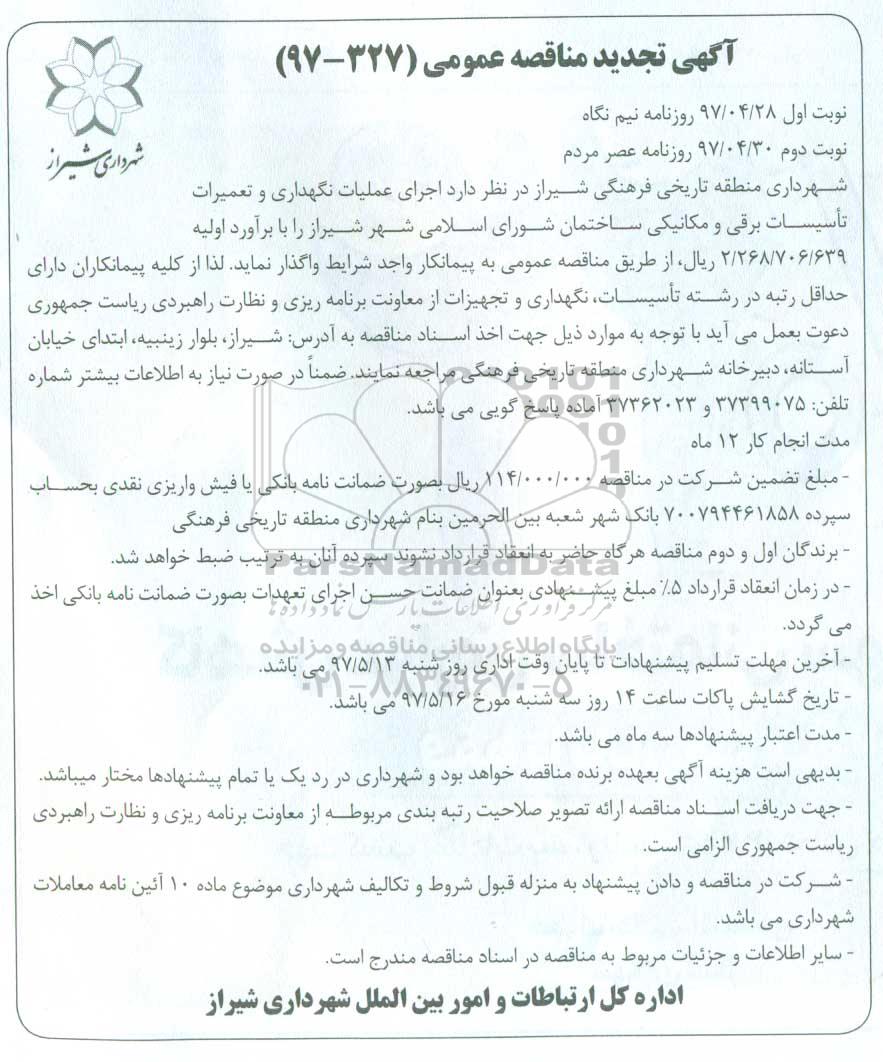 آگهی تجدید مناقصه عمومی (۳۲۷-۹۷)
شهرداری شیراز
نوبت اول ۹۷/۰۴/۲۸ روزنامه نیم نگاه
نوبت دوم ۹۷/۰۴/۳۰ روزنامه عصر مردم
شهرداری منطقه تاریخی فرهنگی شیراز در نظر دارد اجرای عملیات نگهداری و تعمیرات
تأسیسات برقی و مکانیکی ساختمان شورای اسلامی شهر شیراز را با برآورد اولیه
۲/۲۶۸/۷۰۶/۶۳۹ ریال، از طریق مناقصه عمومی به پیمانکار واجد شرایط واگذار نماید. لذا از کلیه پیمانکاران دارای
حداقل رتبه در رشته تأسیسات، نگهداری و تجهیزات از معاونت برنامه ریزی و نظارت راهبردی ریاست جمهوری
دعوت بعمل می آید با توجه به موارد ذیل جهت اخذ اسناد مناقصه به آدرس: شیراز، بلوار زینبیه، ابتدای خیابان
آستانه، دبیرخانه شهرداری منطقه تاریخی فرهنگی مراجعه نمایند. ضمناً در صورت نیاز به اطلاعات بیشتر شماره
تلفن: ۳۷۳۹۹۰۷۵ و ۳۷۳۶۲۰۲۳ آماده پاسخ گویی می باشد.
مدت انجام کار ۱۲ ماه
- مبلغ تضمین شرکت در مناقصه ۱۱۴/۰۰۰/۰۰۰ ریال بصورت ضمانت نامه بانکی یا فیش واریزی نقدی بحساب
سپرده ۷۰۰۷۹۴۴۶۱۸۵۸ بانک شهر شعبه بین الحرمین بنام شهرداری منطقه تاریخی فرهنگی
- برندگان اول و دوم مناقصه هرگاه حاضر به انعقاد قرارداد نشوند سپرده آنان به ترتیب ضبط خواهد شد.
ParsNamadData
- در زمان انعقاد قرارداد ۵٪ مبلغ پیشنهادی بعنوان ضمانت حسن اجرای تعهدات بصورت ضمانت نامه بانکی اخذ
می گردد.
مرکز فرآوری اطلاعات پارس نماد داده ها
پایگاه اطلاع رسانی مناقصه و مزایده
- آخرین مهلت تسلیم پیشنهادات تا پایان وقت اداری روز شنبه ۹۷/۵/۱۳ می باشد.
۰۲۱-۸۸۳۴۹۶۷۰-۵
- تاریخ گشایش پاکات ساعت ۱۴ روز سه شنبه مورخ ۹۷/۵/۱۶ می باشد.
- مدت اعتبار پیشنهادها سه ماه می باشد.
- بدیهی است هزینه آگهی بعهده برنده مناقصه خواهد بود و شهرداری در رد یک یا تمام پیشنهادها مختار میباشد.
- جهت دریافت اسناد مناقصه ارائه تصویر صلاحیت رتبه بندی مربوطه از معاونت برنامه ریزی و نظارت راهبردی
ریاست جمهوری الزامی است.
- شرکت در مناقصه و دادن پیشنهاد به منزله قبول شروط و تکالیف شهرداری موضوع ماده ۱۰ آئین نامه معاملات
شهرداری می باشد.
- سایر اطلاعات و جزئیات مربوط به مناقصه در اسناد مناقصه مندرج است.
اداره کل ارتباطات و امور بین الملل شهرداری شیراز